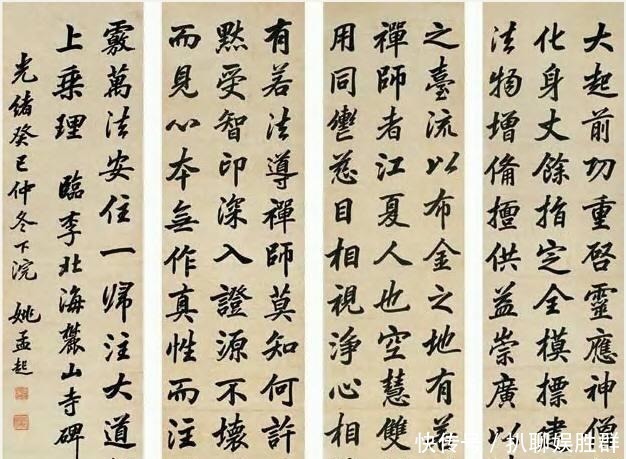 大起前功重啓靈應神僧
化身丈餘指定全模摽建
法物增備擅供益崇廣以
之臺流以布金之地有
禪師者江夏人也空慧雙
用同轡慈目相視淨心相
有若法導禪師莫知何許
黙受智印深入證源不壞
而見心本無作真性而注
覈萬法安住一歸注大道
上乘理 臨李北海麓山寺碑
光緒癸巳仲冬下浣 姚孟起
快传号 / 扒聊娱胜群